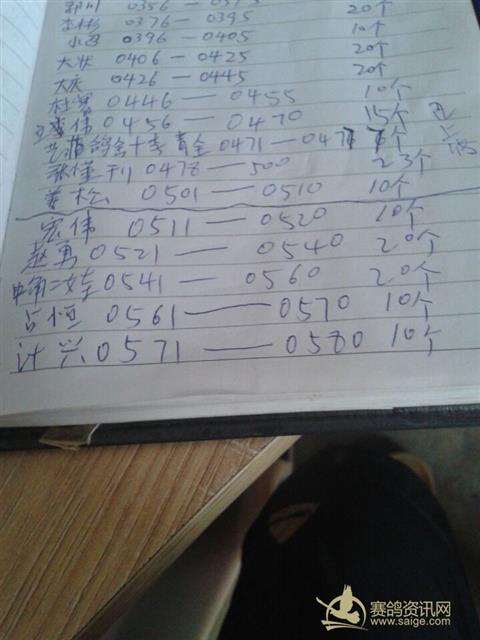 0356 — 0375 20个
0376 — 0395 10个
小召 0396 — 0405 20个
大状 0406 — 0425 20个
大庆 0426 — 0445
杜军 0446 — 0455 10个
李伟 0456 — 0470 15个
鸽舍 李青金 0471 — 0477 7个
张 0478 — 500 23个
姜松 0501 — 0510 10个
宏伟 0511 — 0520 10个
赵勇 0521 — 0540 20个
0541 — 0560 20个
占恒 0561 — 0570 10个
计兴 0571 — 0580 10个
已上
赛鸽资讯网
www.saige.com